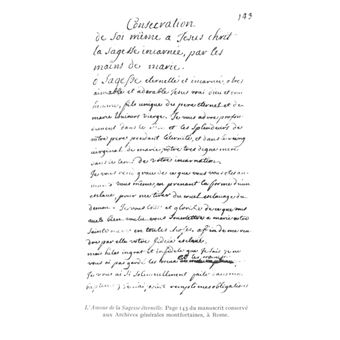 143
Consecration
de soi même a Jesus christ
la sagesse incarnée, par les
mains de marie.
o sagesse eternelle et incarnée, o tres
aimable et adorable Jesus vrai dieu et vrai
homme, fils unique du pere eternel et de
marie toujours vierge. Je vous adore profon
dement dans le sein et les splendeurs de
votre pere pendant l'eternité, et dans le sein
virginal de marie votre tres digne mere
dans le tems de votre incarnation.
Je vous rens grace de ce que vous vous etes an
vous même, en prenant la forme d'un
esclave, pour me tirer du cruel esclavage du
demon. Je vous loue et glorifie de ce que vous
avez bien voulu vous soumettre a marie votre
sainte mere en toutes choses, afin de me ren
dre par elle votre fidele esclave.
mais helas ingrat et infidele que je suis je ne
vous ai pas gardé les
Je vous ai si solennellement
L'Amour de la Sagesse éternelle. Page 143 du manuscrit conservé
aux Archives générales montfortaines, à Rome.